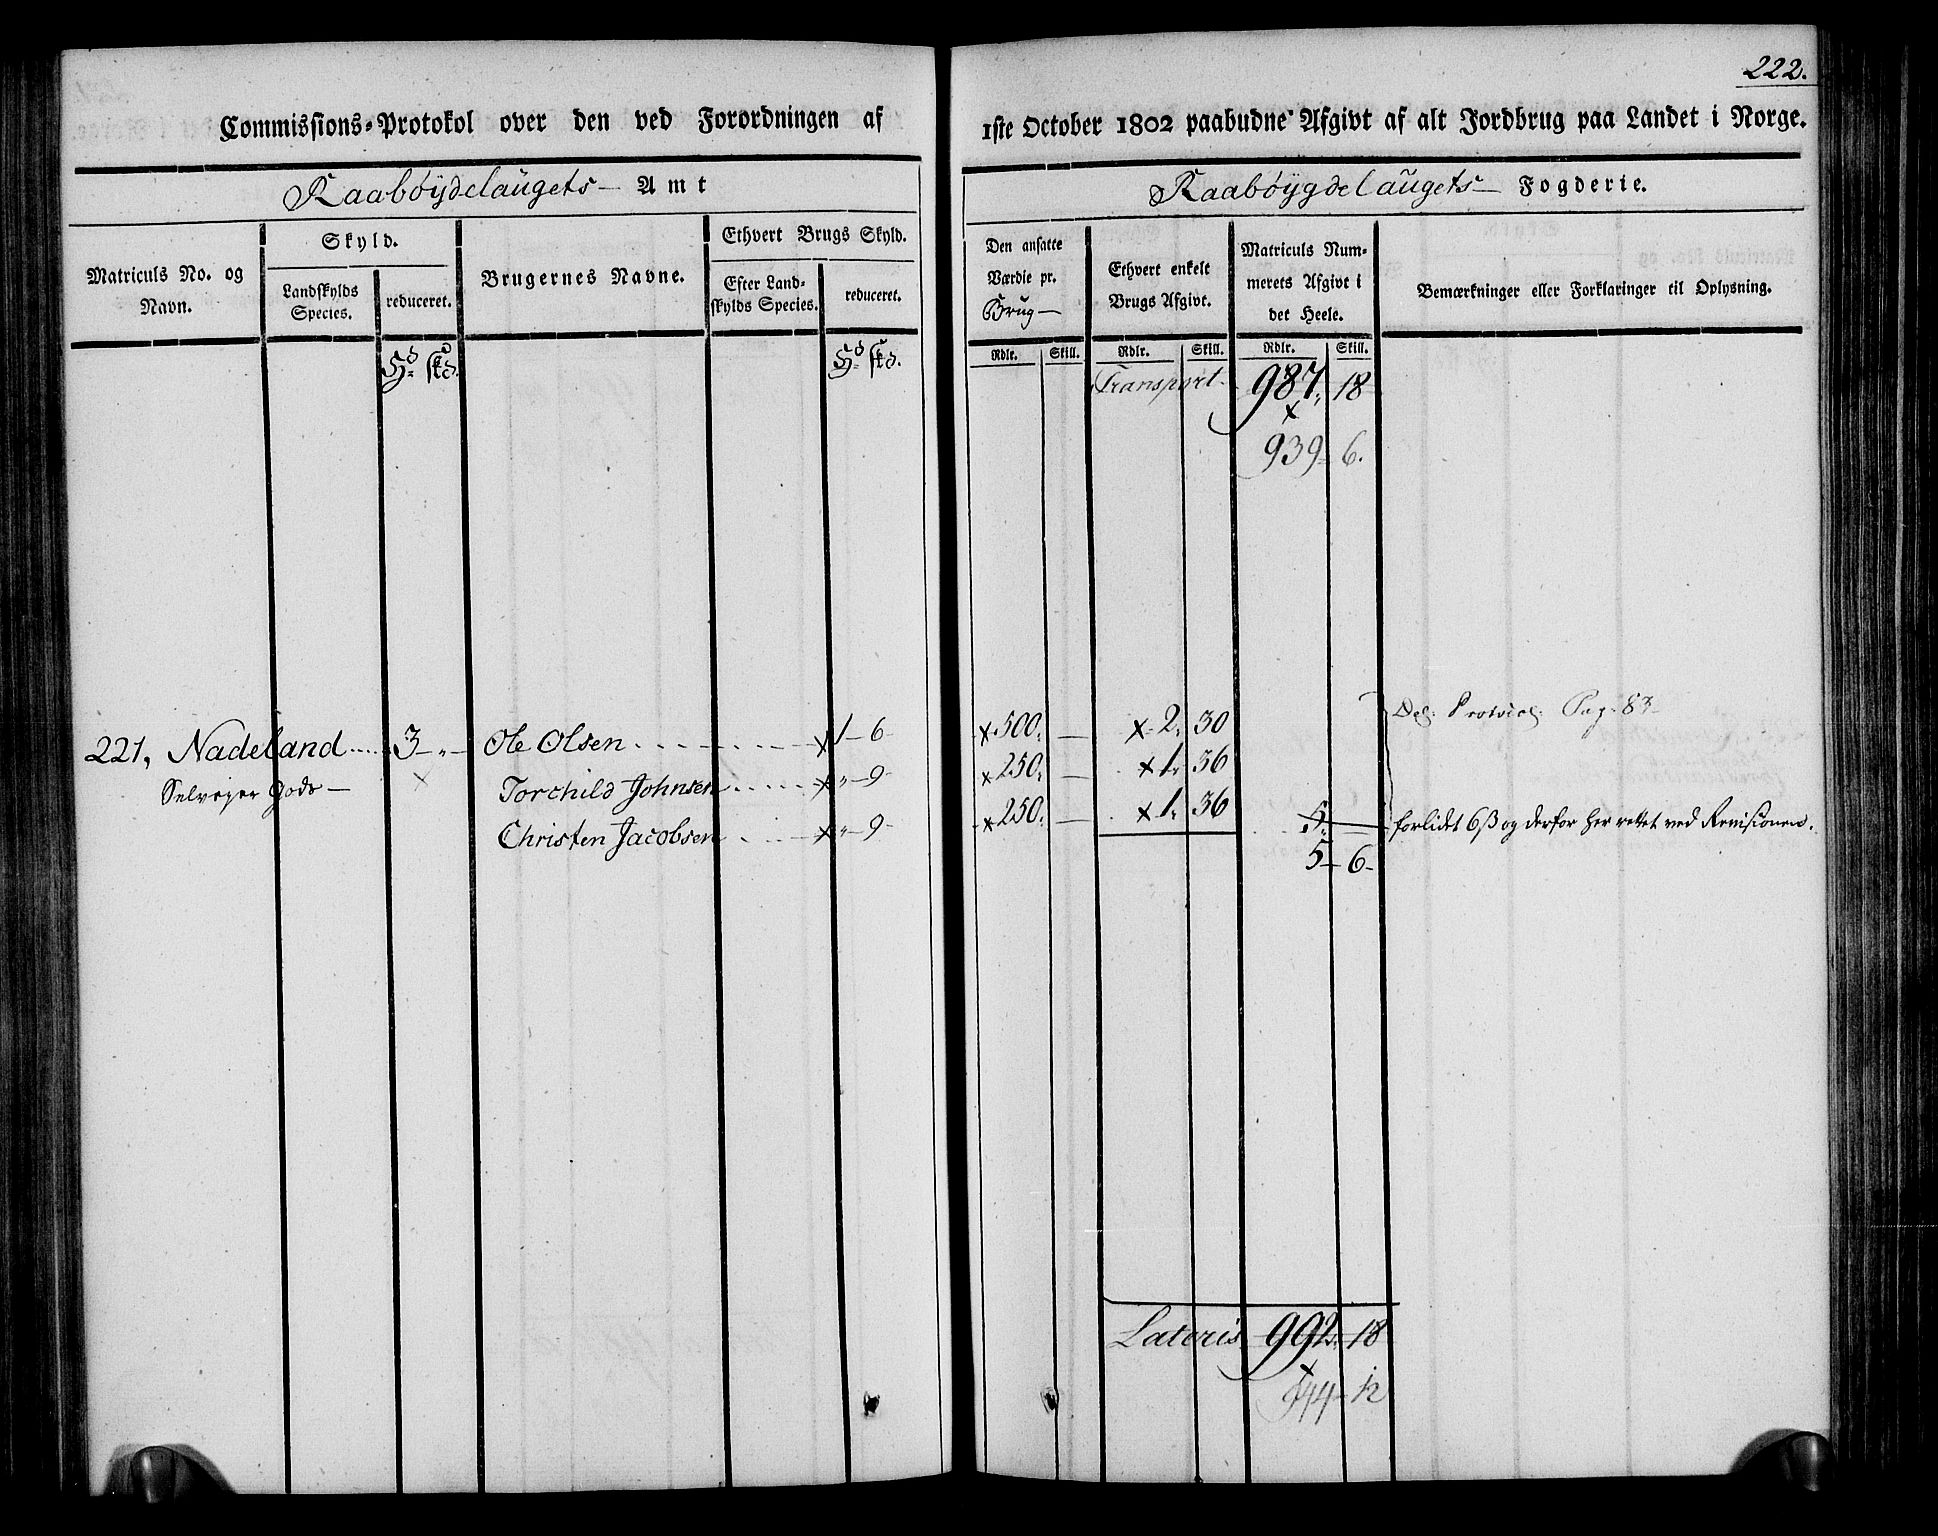 222.
Commissions-Protokol over den ved Forordningen af 1ste October 1802 paabudne Afgivt af alt Jordbrug paa Landet i Norge.
Raabøydelaugets Amt
Raabøygdelaugets Fogderie.
Matriculs No. og Navn.
Skyld.
Landskylds Species.
reduceret.
Brugernes Navne.
Ethvert Brugs Skyld.
Efter Landskylds Species.
reduceret.
Den ansatte Værdie pr. Brug
Ethvert enkelt Brugs Afgivt.
Matriculs Nummerets Afgivt i det Heele.
Bemærkninger eller Forklaringer til Oplysning.
Hd. skd.
Hd. skd.
Rdlr. Skill. Rdlr. Skill. Rdlr. Skill.
Transport 987. 18
939 6.
Pag. 83
221, Nadeland 3 " Ole Olsen 1 6 500. 2. 30
Selveyer Gods Torchild Johnsen " 9 250. 1. 36
Christen Jacobsen " 9 250. 1. 36 5. forlidet 6ß og derfor her rettet ved Revisionen.
5 6
Lateris 992. 18
944 12